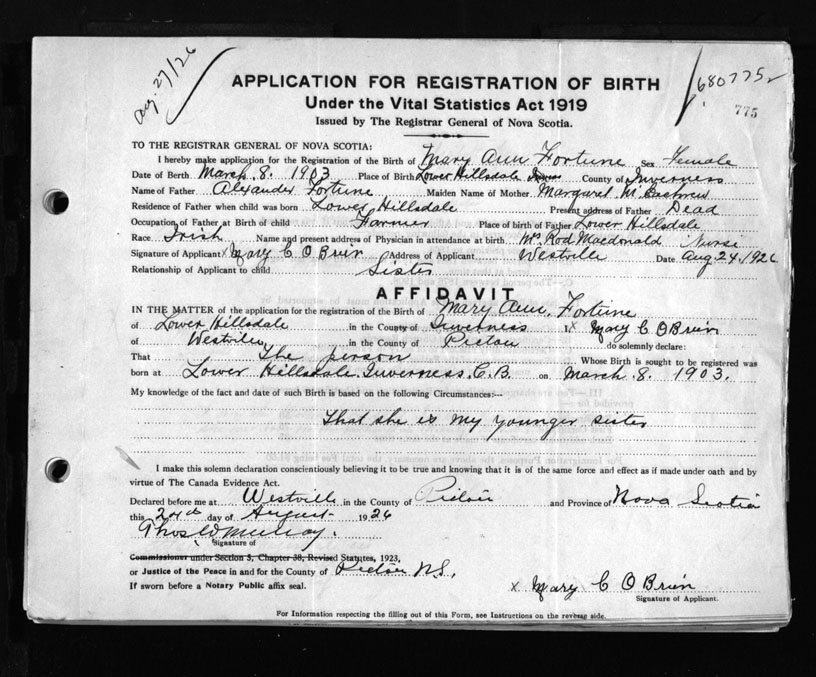 Aug. 27/26
680775
775
APPLICATION FOR REGISTRATION OF BIRTH
Under the Vital Statistics Act 1919
Issued by The Registrar General of Nova Scotia.
TO THE REGISTRAR GENERAL OF NOVA SCOTIA:
I hereby make application for the Registration of the Birth of Mary Ann Fortune Sex Female
Date of Birth March. 8. 1903 Place of Birth Lower Hillsdale County of Inverness
Name of Father Alexander Fortune Maiden Name of Mother Margaret
Residence of Father when child was born Lower Hillsdale Present address of Father Dead
Occupation of Father at Birth of child Farmer Place of birth of Father Lower Hillsdale
Race Irish Name and present address of Physician in attendance at birth Mrs Rod Macdonald Nurse
Signature of Applicant X Mary C O Brien Address of Applicant Westville Date Aug 24. 1926
Relationship of Applicant to child Sister
AFFIDAVIT
IN THE MATTER of the application for the registration of the Birth of Mary Ann, Fortune
of Lower Hillsdale in the County of Inverness I, X Mary C O Brien
of Westville in the County of Pictou do solemnly declare:
That The person Whose Birth is sought to be registered was
born at Lower Hillsdale. Inverness. C. B. on March. 8. 1903.
My knowledge of the fact and date of such Birth is based on the following Circumstances:--
That she is my younger sister
I make this solemn declaration conscientiously believing it to be true and knowing that it is of the same force and effect as if made under oath and by
virtue of The Canada Evidence Act.
Declared before me at Westville in the County of Pictou and Province of Nova Scotia
this day of August 1926
Signature of
Commissioner under Section 3, Chapter 38, Revised Statutes, 1923,
or Justice of the Peace in and for the County of Pictou N.S.
If sworn before a Notary Public affix seal.
X Mary C O Brien
Signature of Applicant.
For Information respecting the filling out of this Form, see Instructions on the reverse side.